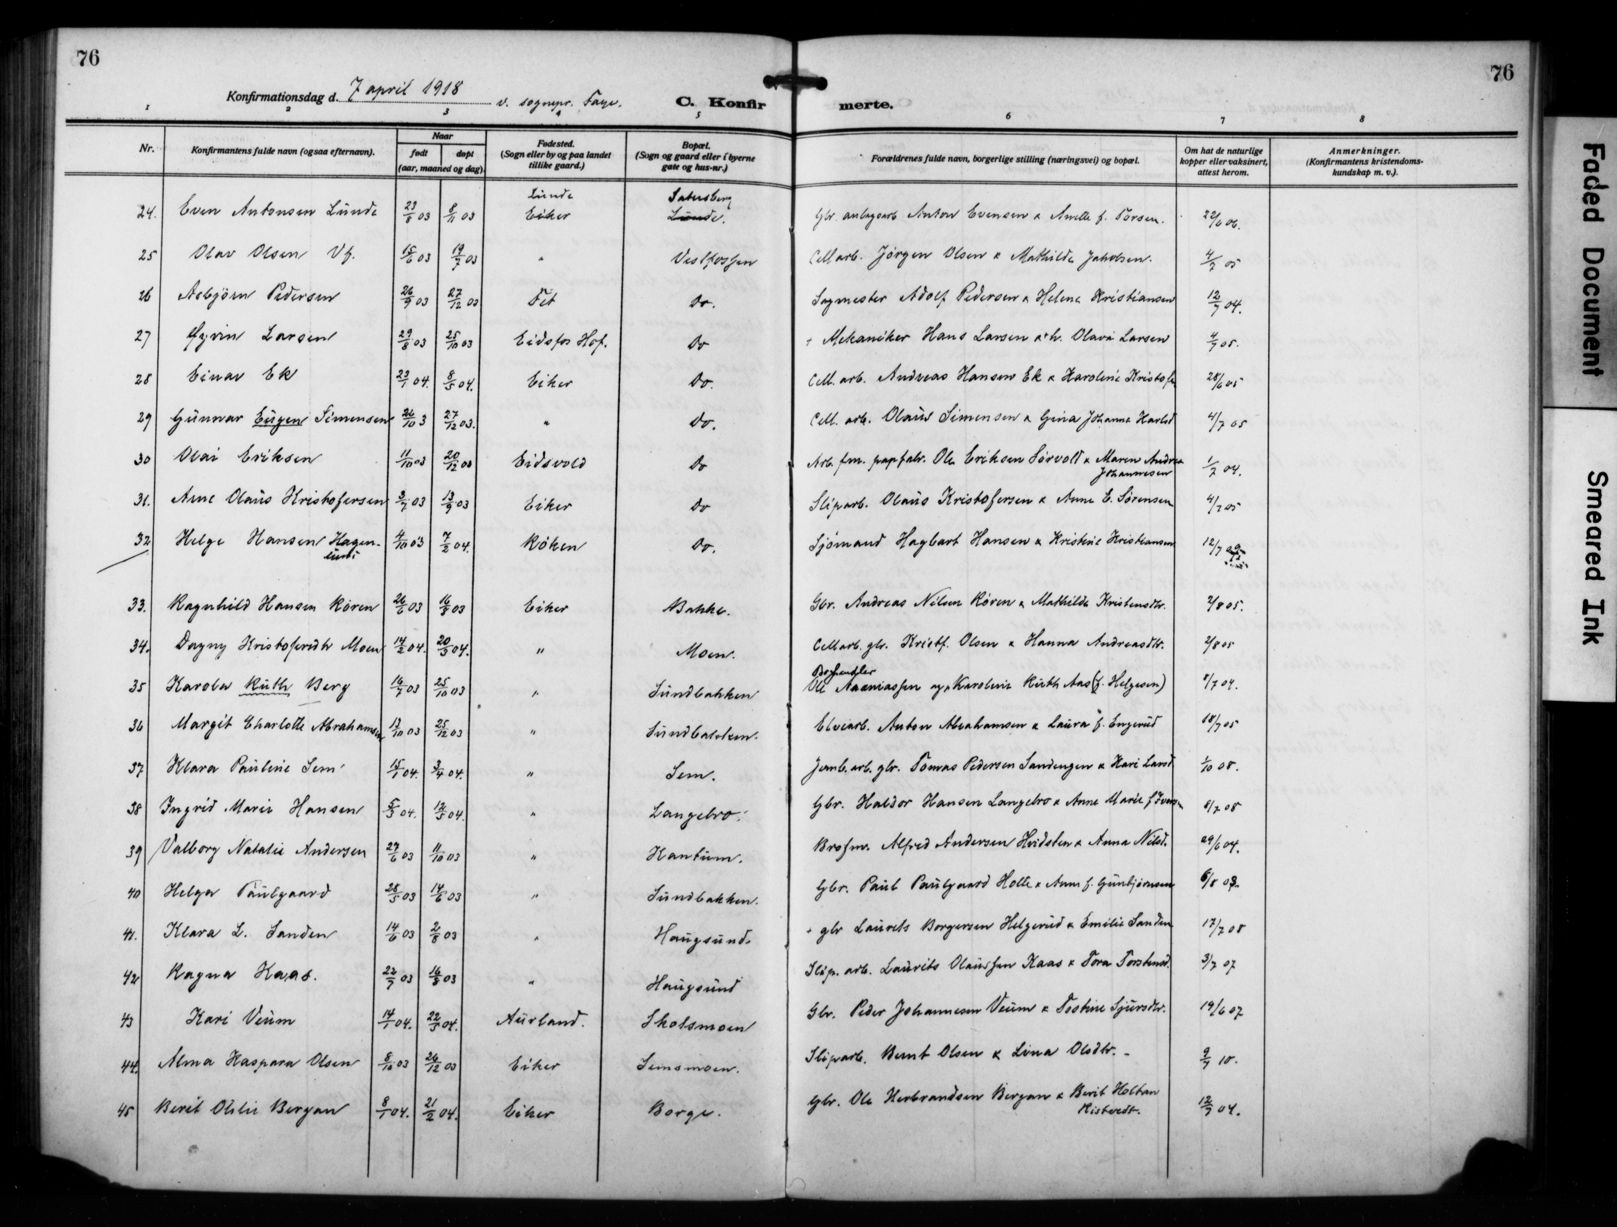 76
76
Konfirmationsdag d. 7 april 1918 v. sognepr. Faye.
C. Konfirmerte.
1 2 3 4 5 6 7 8
Nr.
Konfirmantens fulde navn (ogsaa efternavn).
Naar
født
døpt
(aar, maaned og dag).
Fødested.
(Sogn eller by og paa landet
tillike gaard.)
Bopæl.
(Sogn og gaard eller i byerne
gate og hus-nr.)
Forældrenes fulde navn, borgerlige stilling (næringsvei) og bopæl.
Om hat de naturlige
kopper eller vaksinert,
attest herom.
Anmerkninger.
(Konfirmantens kristendoms-
kundskap m. v.).
24. Even Antonsen Lunde 23/8 03 8/11 03 Lunde Eiker Lunde. Gbr. Anton Evensen & f. Torsen. 22/6 06.
25 Olav Olsen Vf. 15/6 03 19/7 03 " Vestfossen Cell.arb. Jørgen Olsen & Mathilde Jakobsen. 4/7 05
26 Asbjörn Pedersen 26/9 03 27/12 03 Fet Do. Sagmester Adolf Pedersen & Helene Kristiansen 12/7 04.
27 Øyvin Larsen 29/8 03 25/10 03 Eidsfos Hof. Do Mekaniker Hans Larsen & h. Olava Larsen 4/7 05.
28 Einar Ek 23/1 04. 8/5 04. Eiker Do. Cell. arb. Andreas Hansen Ek & Karoline Kristofs 28/6 05
29 Gunnar Eugen Simensen 26/10 3 27/12 03. " Do. Cell. arb. Olaus Simensen & Gina Johanne Karlsd 4/7 05
30 Olai Eriksen 11/10 03 20/12 03 Eidsvold Do Arb. fm. papfabr. Ole Eriksen Sörvold & Maren Andrea
Johannesen 1/7 04.
31. Arne Olaus Kristofersen 3/7 03 13/9 03 Eiker Do Slip.arb. Olaus Kristofersen & Anne E. Sörensen 4/7 05
32 Helge Hansen Hagen- 4/10 03 7/2 04. Röken Do. Sjömand Hagbart Hansen & Kristine Kristiansen 12/7
lund
33. Ragnhild Hansen Kören 26/6 03 16/8 03 Eiker Bakke. Gbr. Andreas Nilsen Kören & Mathilde Kristensdtr. 2/8 05.
34. Dagny Kristofersdtr Moen 14/2 04. 20/3 04. " Moen. Cell.arb. gbr. Kristf. Olsen & Hanna Andreasdtr. 2/8 05
35 Karola Ruth Berg 16/7 03 25/10 03 " Sundbakken Ole Aanniassen og Karoline Ruth Aas (f. Helgesen)
36 Margit Charlotte Abrahamsen 13/10 03 25/12 03 " Sundbakken. Elvearb. Anton Abrahamsen & Laura f. Engerud 18/7 05
37 Klara Pauline Sem 15/1 04. 3/4 04. " Sem. Jernb.arb. gbr. Tomas Pedersen Sandengen & Kari Larsd. 1/10 08.
38 Ingrid Marie Hansen 5/3 04. 12/5 04. " Langebro. Gbr. Haldor Hansen Langebro & Anne Marie f. Iversen 8/7 08
39 Valborg Natalie Andersen 27/6 03 11/10 03 " Kantum. Brofm. Alfred Andersen Hvidsten & Anna Nilsd. 29/6 04.
40 Helga Paulgaard 28/5 03 14/6 03 " Sundbakken. Gbr. Paul Paulgaard Holte & Anne f. Gunbjörnsen 6/8 03.
41. Klara L. Sanden 14/6 03 2/8 03 " Haugsund. gbr Laurits Borgersen Helgerud & Emilie Sanden 17/7 08
42 Ragna Kaas. 22/7 03 16/8 03 " Haugsund Slip. arb. Laurits Olaussen Kaas & Tora Torstensd. 3/7 07
43 Kari Veum 14/1 04. 22/5 04. Aurland. Skotsmoen Gbr. Peder Johannesen Veum & Sjursdtr. 19/6 07
44. Alma Kaspara Olsen 8/10 03 26/12 03 Eiker Semsmoen. Sliparb. Bernt Olsen & Lina Olsdtr. 9/7 10.
45 Berit Otilie Bergan 8/1 04. 21/2 04. Eiker Borge. Gbr. Ole Herbrandsen Bergan & Berit Holtan
12/7 04.
Faded Document
Smeared Ink